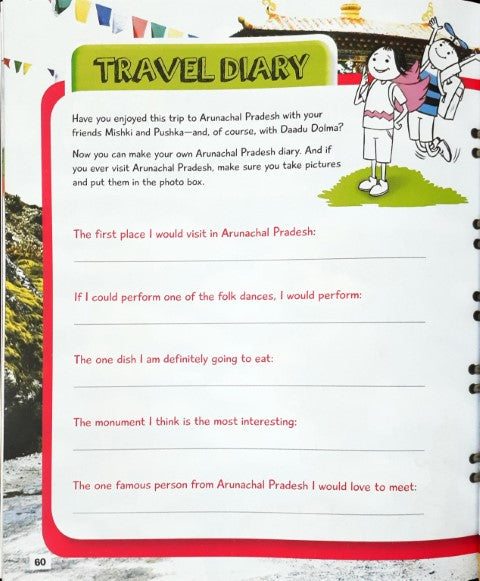 TRAVEL DIARY
Have you enjoyed this trip to Arunachal Pradesh with your
friends Mishki and Pushka—and, of course, with Daadu Dolma?
Now you can make your own Arunachal Pradesh diary. And if
you ever visit Arunachal Pradesh, make sure you take pictures
and put them in the photo box.
The first place I would visit in Arunachal Pradesh:
If I could perform one of the folk dances, I would perform:
The one dish I am definitely going to eat:
The monument I think is the most interesting:
The one famous person from Arunachal Pradesh I would love to meet:
60